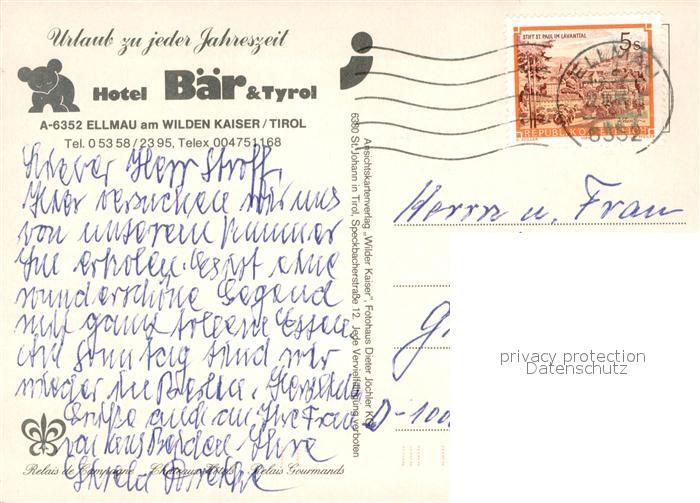 Urlaub zu jeder Jahreszeit
Hotel Bär & Tyrol
A-6352 ELLMAU am WILDEN KAISER / TIROL
Tel. 0 53 58 / 23 95, Telex 004751168
Lieber Herr Stroff,
Hier versuchen wir uns
von unserem Kummer
zu erholen. Es ist eine
wunderschöne Gegend
mit ganz tollem Essen.
Am Sonntag sind wir
wieder in Berlin. Herzliche
Grüße auch an Ihre Frau
von uns Beiden Ihre
Relais de Campagne Chateaux-Hôtels Relais Gourmands
Ansichtskartenverlag „Wilder Kaiser", Fotohaus Dieter Jöchler KG
6380 St. Johann in Tirol, Speckbacherstraße 12. Jede Vervielfältigung verboten
STIFT ST. PAUL IM LAVANTTAL
5 S
REPUBLIK ÖSTERREICH
ELLMAU
6352
Herrn u. Frau
G
D-100
privacy protection
Datenschutz